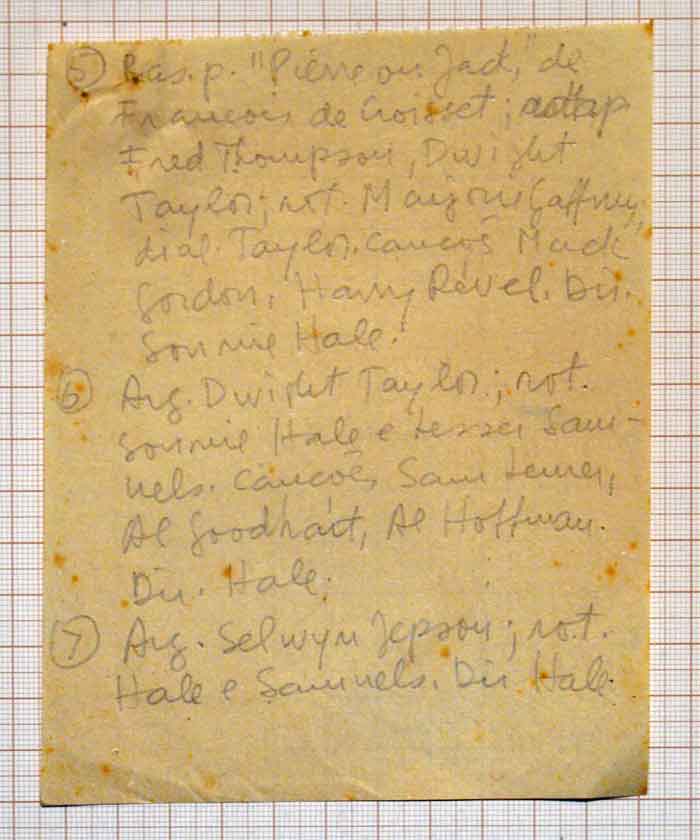 5) Bas. p. "Pierre ou Jack," de
Francois de Croisset; adtap
Fred Thompson, Dwight
Taylor; rot. Marjorie Gaffney,
dial. Taylor. Cancoes Mack
Gordon, Harry Revel. Dir.
Sonnie Hale.
6) Arg. Dwight Taylor; rot.
Sonnie Hale e Lesser Sam-
uels. Cancoes, Sam Lerner,
Al Goodhart, Al Hoffman.
Dir. Hale.
7) Arg. Selwyn Jepson; rot.
Hale e Samuels. Dir Hale